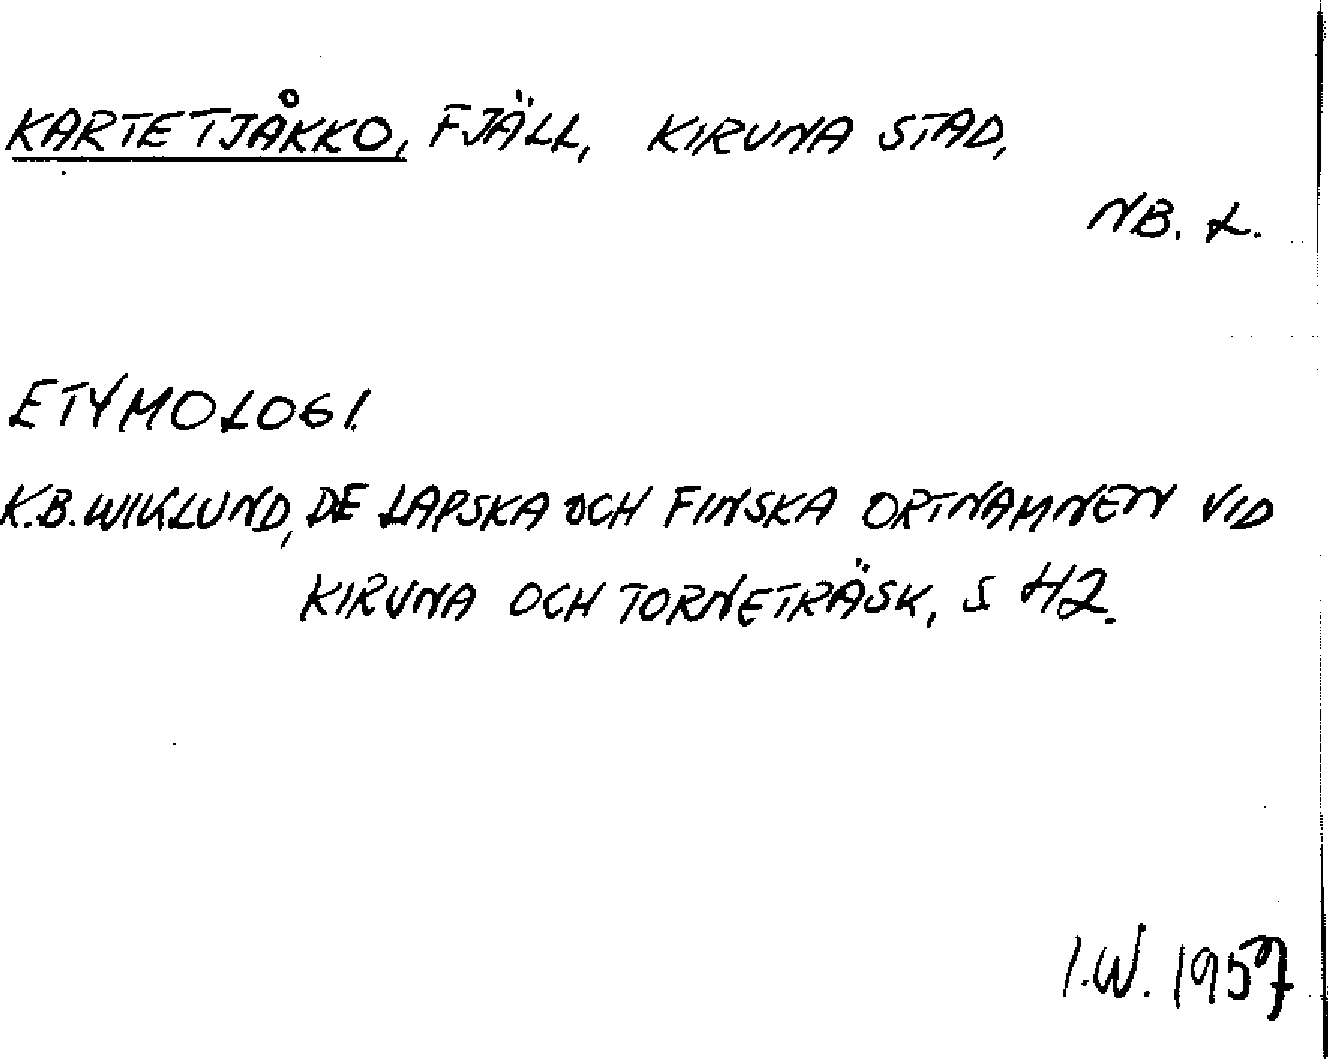 KARTETJÅKKO, FJÄLL, KIRUNA STAD,
NB. L.
ETYMOLOGI.
K.B. WIKLUND, DE LAPSKA OCH FINSKA ORTNAMNEN VID
KIRUNA OCH TORNETRÄSK, S 42.
I.W. 1957